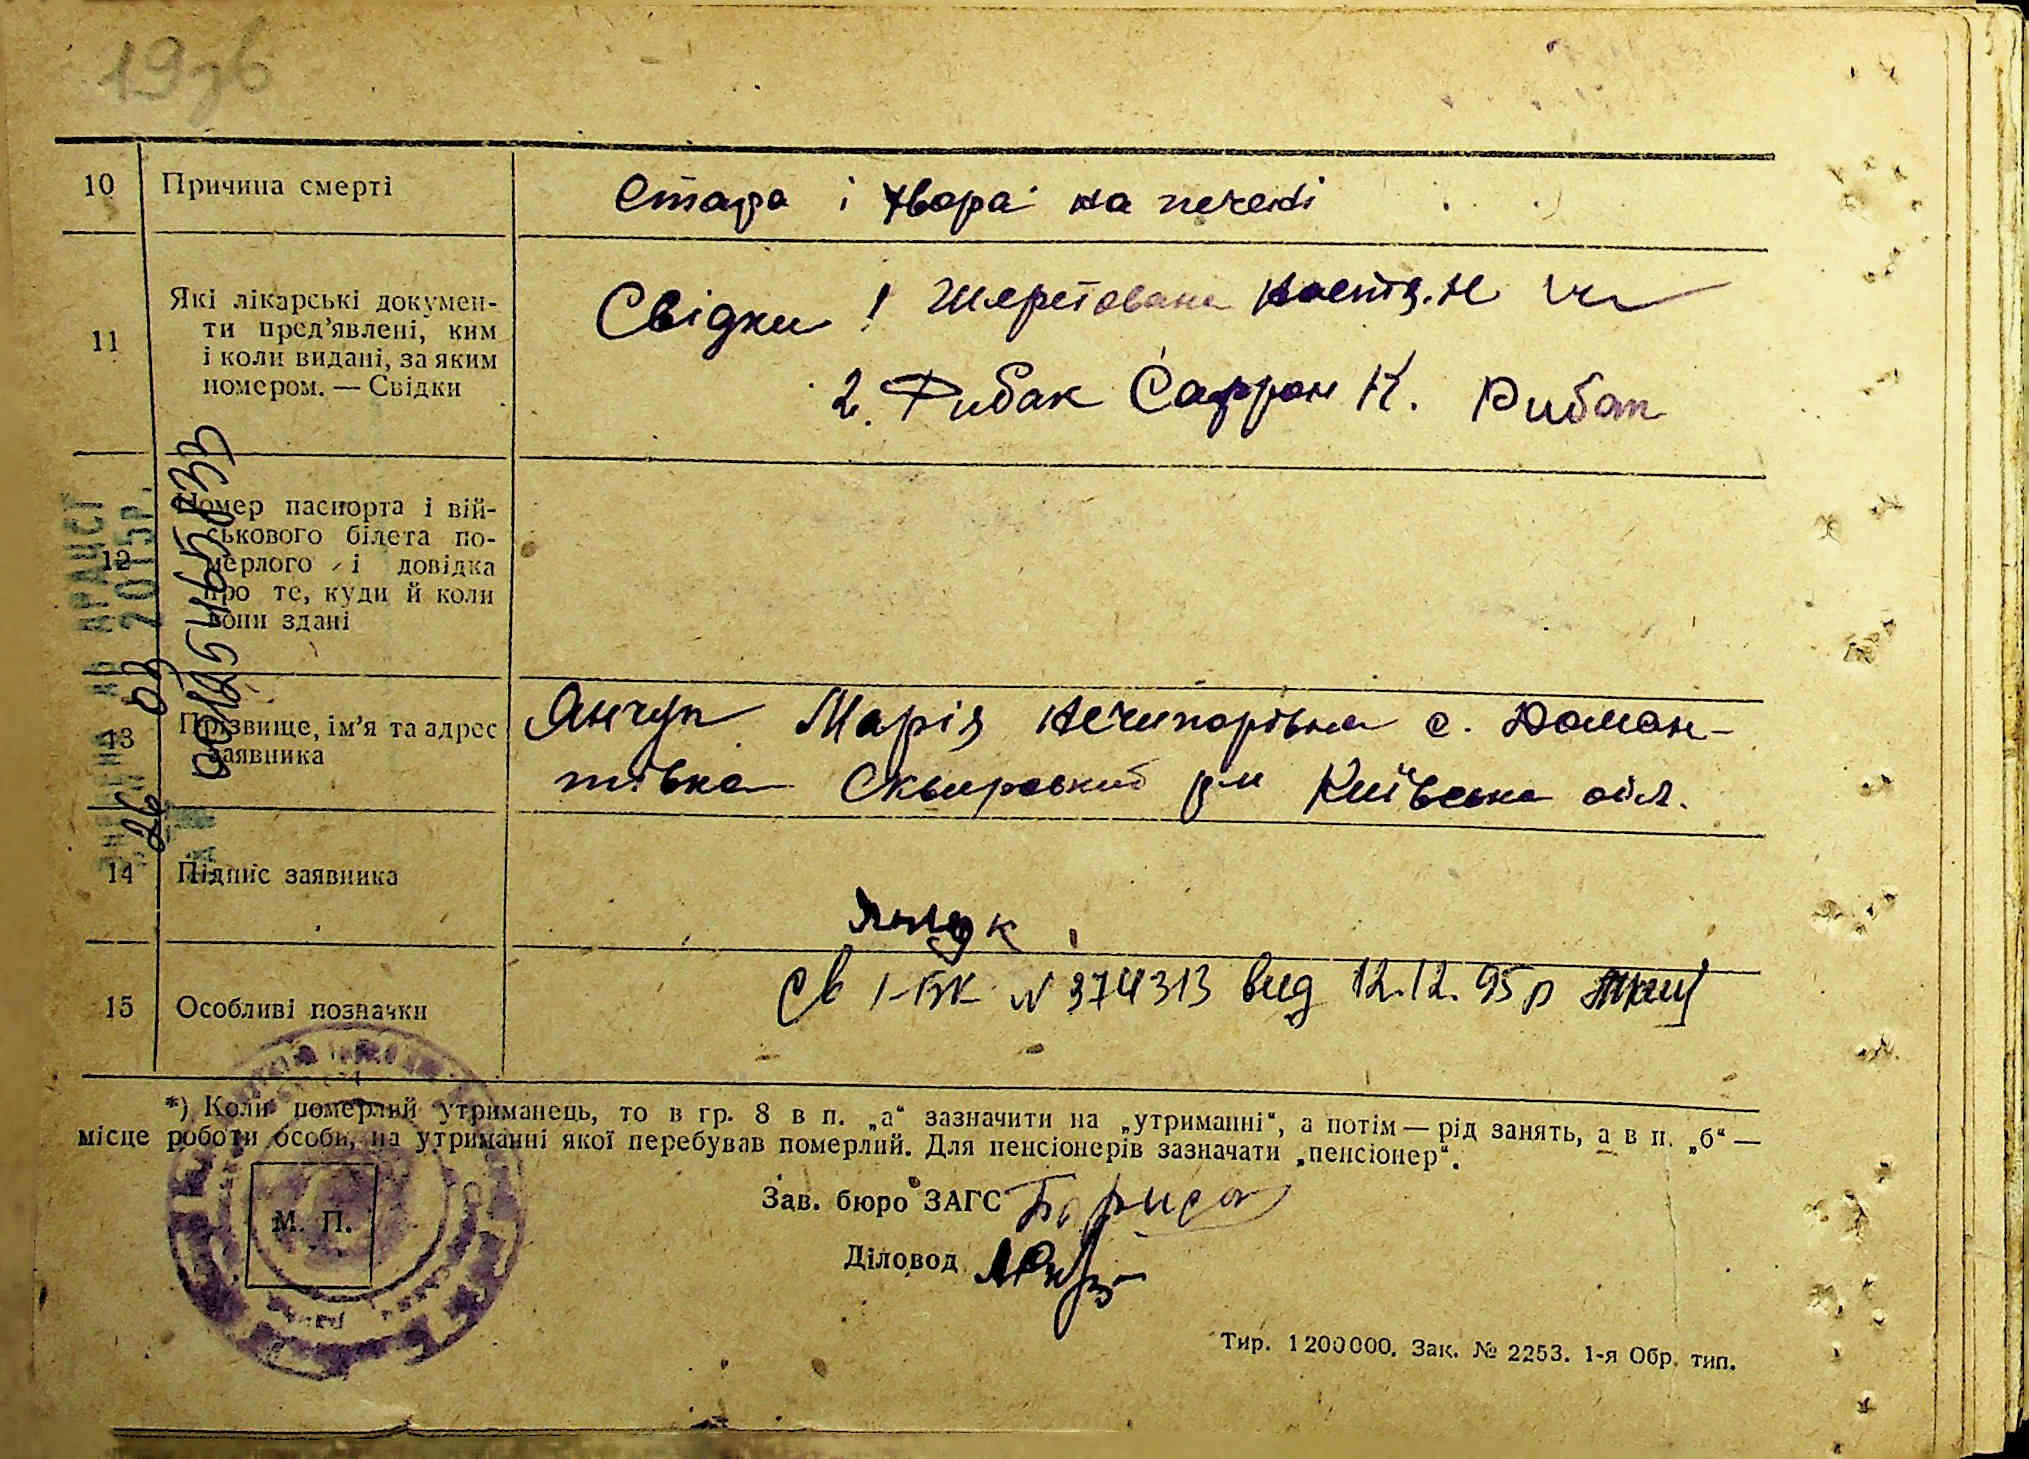 10 Причина смерті Стара і хвора на печені
11 Які лікарські докумен-
ти пред’явлені, ким
і коли видані, за яким
номером. — Свідки
Свідки !
2. Рибак Сафрон К. Рибак
12 Номер паспорта і вій-
ськового білета по-
мерлого і довідка
про те, куди й коли
вони здані
13 Прізвище, ім’я та адрес
заявника
Янчук Марія Нечипорівна с. Доман-
тівка Сквирський р-н Київська обл.
14 Підпис заявника
Янчук
15 Особливі позначки
св I-БК N 374313 вид 12.12.95 р
*) Коли померлий утриманець, то в гр. 8 в п. „а“ зазначити на „утриманні“, а потім — рід занять, а в п. „б“ —
місце роботи особи, на утриманні якої перебував померлий. Для пенсіонерів зазначати „пенсіонер“.
Зав. бюро ЗАГС
М. П.
Діловод
Тир. 1200000. Зак. № 2253. 1-я Обр. тип.